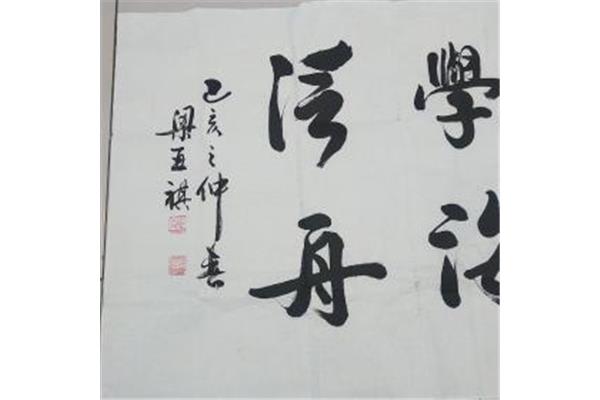 學海
泛舟
己亥之仲春
梁祺